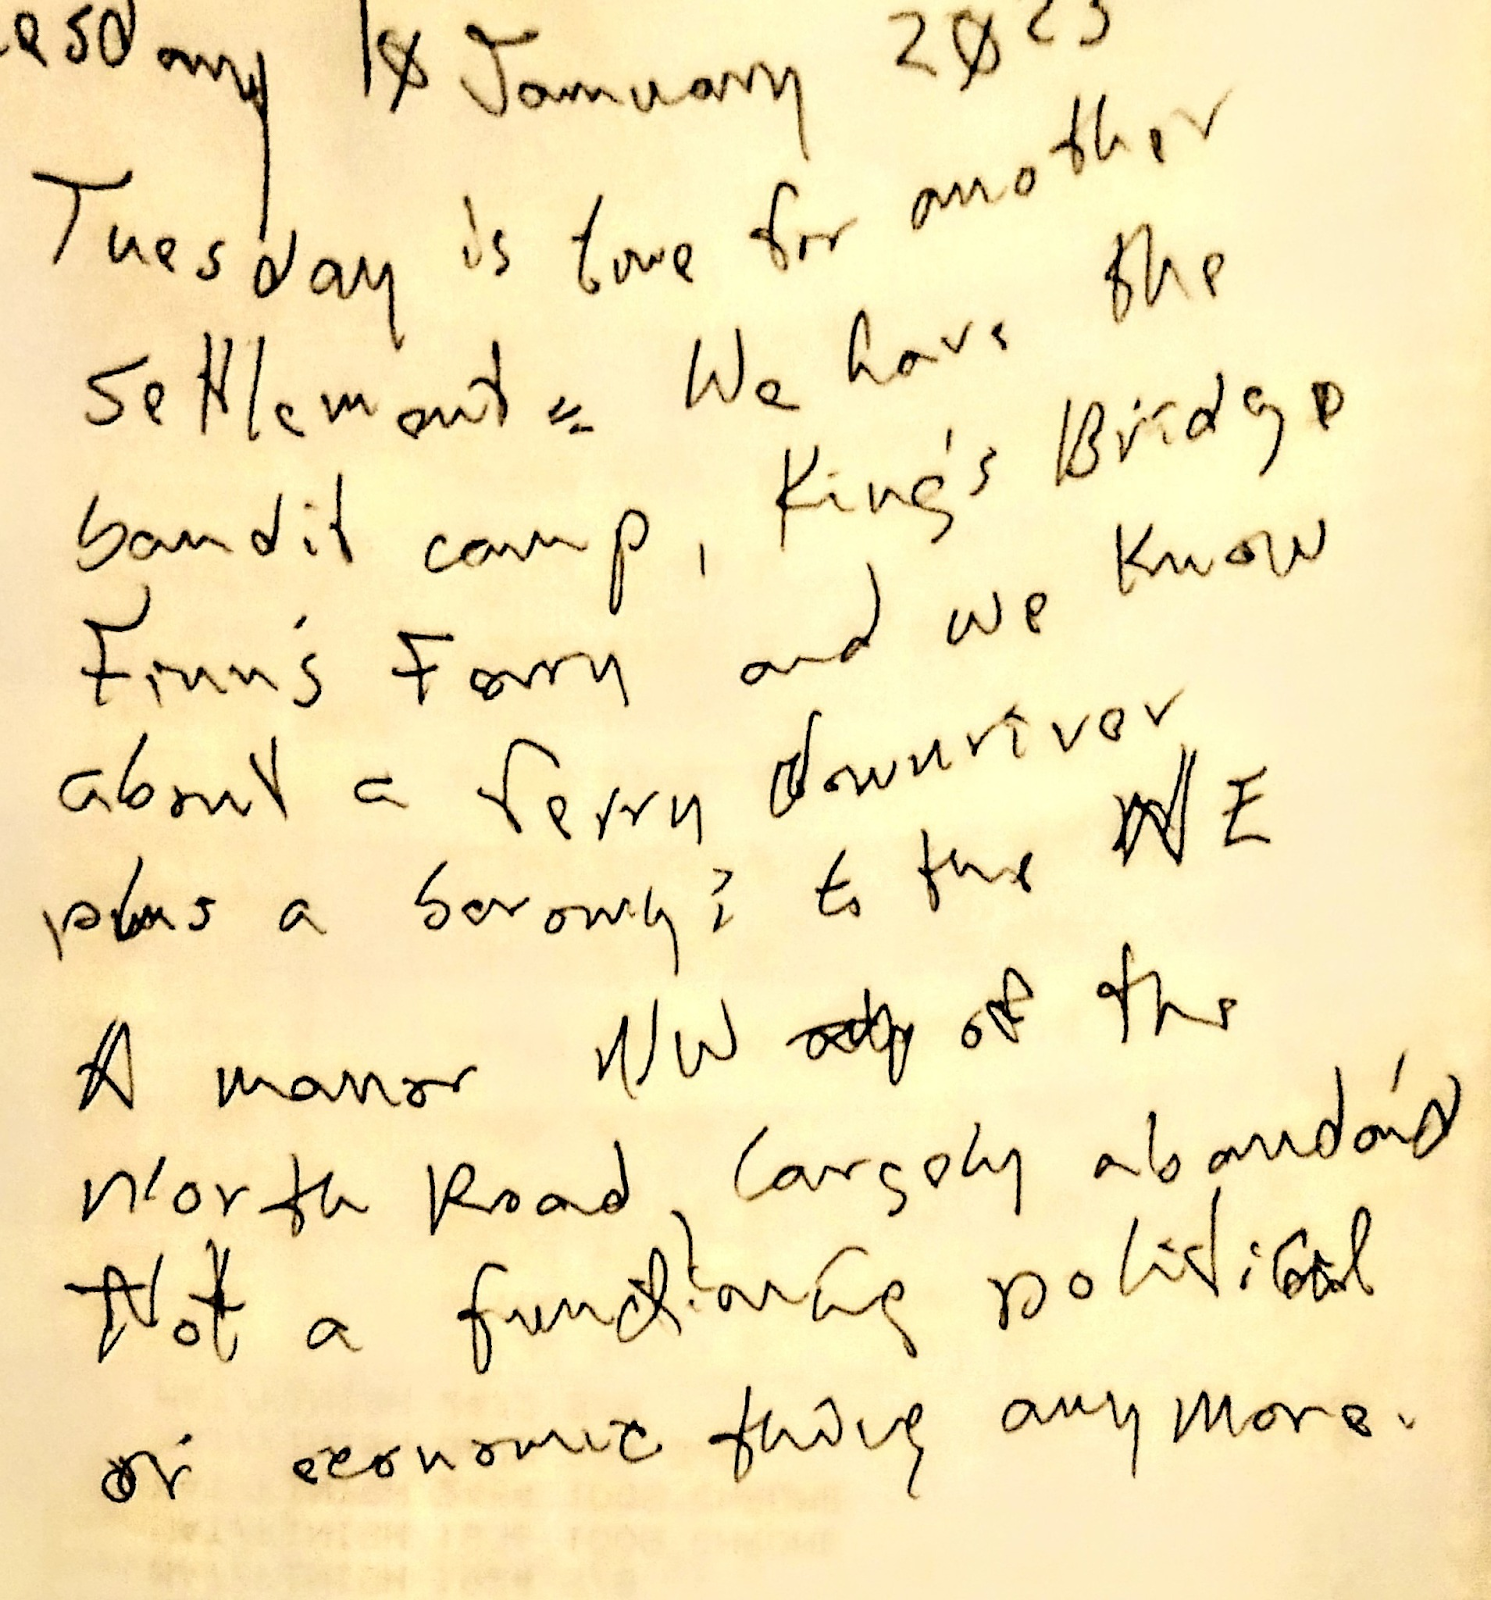 esday 10 January 2023
Tuesday is time for another
settlement. We have the
bandit camp, King's Bridge
Finn's Ferry and we know
about a ferry downriver
plus a barony? to the NE
A manor NW of the
North Road, largely aband'd
Not a functioning political
or economic thing anymore.